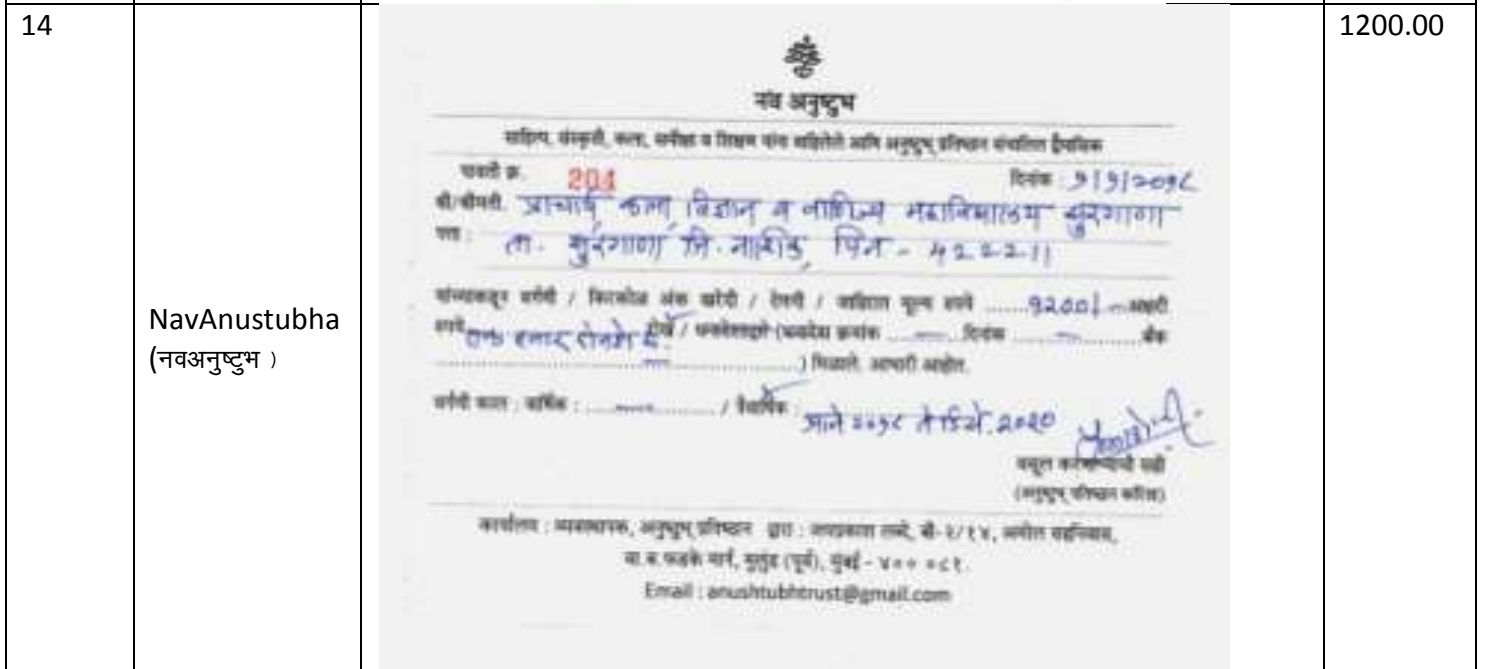 14
1200.00
NavAnustubha
(नवअनुष्टुभ )
नव अनुष्टुभ
साहित्य, संस्कृती, कला, समीक्षा व शिक्षण यांना वाहिलेले आणि अनुष्टुभ् प्रतिष्ठान संचालित द्वैमासिक
पावती क्र. 204 दिनांक : १/१/२०१८
श्री/श्रीमती. प्राचार्य, कला, विज्ञान व वाणिज्य महाविद्यालय सुरगाणा
पत्ता : ता. सुरगाणा जि. नाशिक, पिन - 422211
यांच्याकडून वर्गणी / किरकोळ अंक खरेदी / देणगी / जाहिरात मूल्य रुपये ......१२००/- अक्षरी
रुपये एक हजार दोनशे रोख / धनादेशाद्वारे (धनादेश क्रमांक ..... दिनांक ..... बँक
.....) मिळाले. आभारी आहोत.
वर्गणी काल : वार्षिक : ..... / त्रैवार्षिक : जाने २०१८ ते डिसें. 2020
वसूल करणाऱ्याची सही
(अनुष्टुभ् प्रतिष्ठान करिता)
कार्यालय : व्यवस्थापक, अनुष्टुभ् प्रतिष्ठान द्वारा : जयप्रकाश लब्दे, बी-२/१४, अमोल सहनिवास,
वा.ब. फडके मार्ग, मुलुंड (पूर्व), मुंबई - ४०० ०८१.
Email : anushtubhtrust@gmail.com